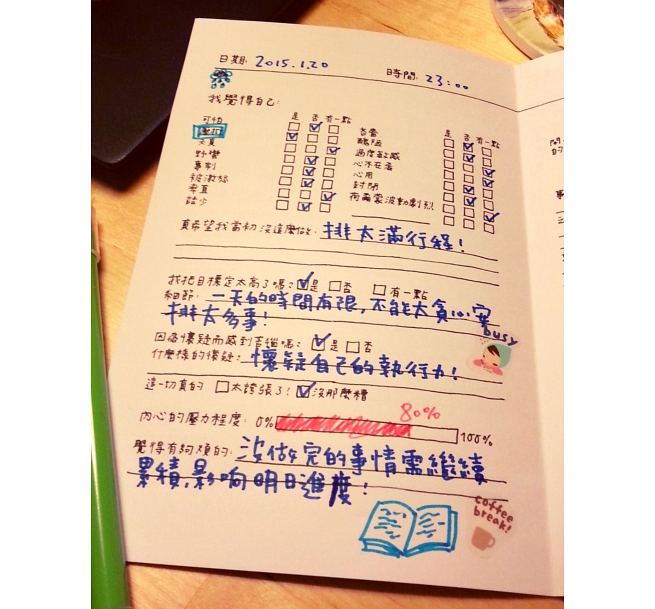 日期: 2015.1.20
時間: 23:00
我覺得自己:
是 否 有一點
可怕
野蠻
專制
被激怒
愛哭
醜陋
過度敏感
心不在焉
封閉
荷爾蒙波動劇烈
是 否 有一點
真希望我當初沒這麼做: 排太滿行程!
我把目標定太高了嗎? 是 否 有一點
細節: 一天的時間有限,不能太貪心塞
排太多事!
busy
因為懷疑而感到苦惱嗎? 是 否
什麼樣的懷疑: 懷疑自己的執行力!
這一切真的 太誇張了! 沒那麼糟
80%
內心的壓力程度: 0% 100%
覺得有夠煩的: 沒做完的事情需繼續
累積,影响明日進度!
coffee
break!